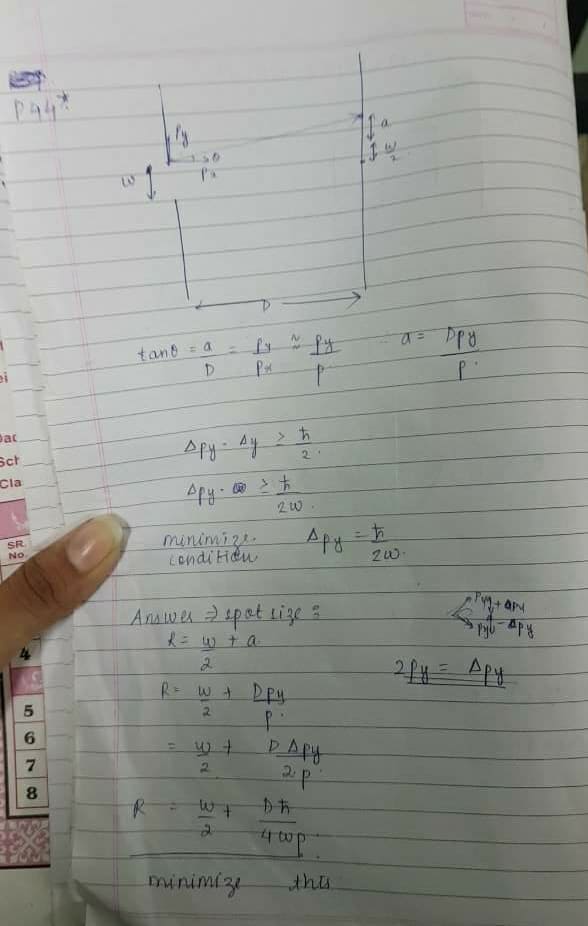 P44*
Py
θ
Px
w
a
w/2
D
tanθ = a/D = Py/Px ≈ Py/P
a = DPy/P.
ΔPy · Δy ≥ ħ/2.
ΔPy · ≥ ħ/2w.
minimize condition ΔPy = ħ/2w.
Answer ⇒ spot size :
R = w/2 + a
+ ΔPy
- ΔPy
2Py = ΔPy
R = w/2 + DPy/P.
= w/2 + DΔPy/2P.
R = w/2 + Dħ/4wP.
minimize this
SR. No.
4
5
6
7
8
Sch
Cla